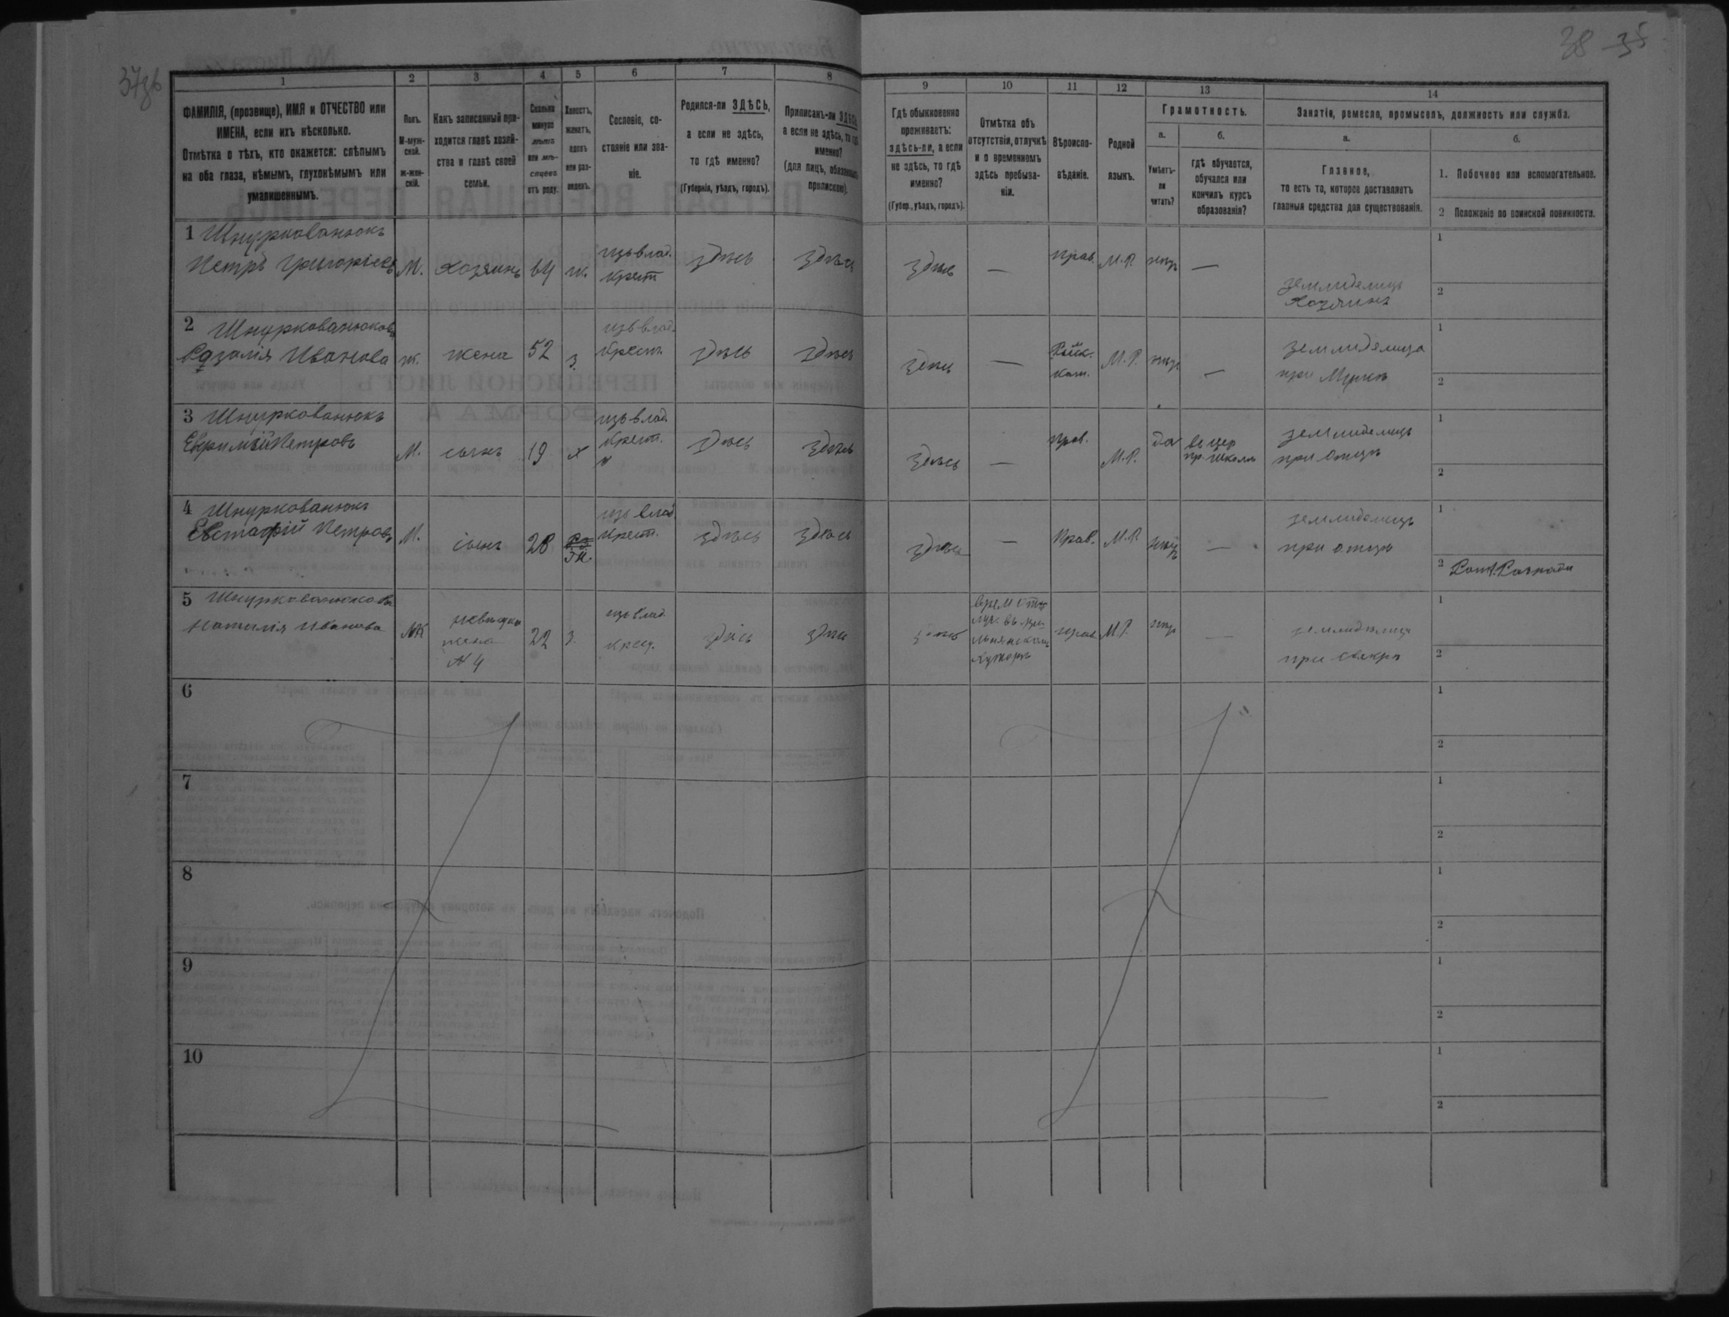 37об
38 35
1
2
3
4
5
6
7
8
9
10
11
12
13
14
ФАМИЛІЯ, (прозвище), ИМЯ и ОТЧЕСТВО или
ИМЕНА, если ихъ нѣсколько.
Отмѣтка о тѣхъ, кто окажется: слѣпымъ
на оба глаза, нѣмымъ, глухонѣмымъ или
умалишеннымъ.
Полъ.
М-муж-
ской.
ж-жен-
скій.
Какъ записанный при-
ходится главѣ хозяй-
ства и главѣ своей
семьи.
Сколько
минуло
лѣтъ
или мѣ-
сяцевъ
отъ роду.
Холостъ,
женатъ,
вдовъ
или раз-
веденъ.
Сословіе, со-
стояніе или зва-
ніе.
Родился-ли ЗДѢСЬ,
а если не здѣсь,
то гдѣ именно?
(Губернія, уѣздъ, городъ).
Приписанъ-ли ЗДѢСЬ,
а если не здѣсь, то гдѣ
именно?
(для лицъ, обязанныхъ
припискою).
Гдѣ обыкновенно
проживаетъ:
здѣсь-ли, а если
не здѣсь, то гдѣ
именно?
(Губер., уѣздъ, городъ).
Отмѣтка объ
отсутствіи, отлучкѣ
и о временномъ
здѣсь пребыва-
ніи.
Вѣроиспо-
вѣданіе.
Родной
языкъ.
Грамотность.
а.
б.
Умѣетъ-
ли
читать?
гдѣ обучается,
обучался или
кончилъ курсъ
образованія?
Занятіе, ремесло, промыселъ, должность или служба.
а.
б.
Главное,
то есть то, которое доставляетъ
главныя средства для существованія.
1. Побочное или вспомогательное.
2 Положеніе по воинской повинности.
1 Шнуркованюкъ
Петръ Григорьевъ М. хозяинъ 64 ж. изъ влад. крест здѣсь здѣсь здѣсь — прав. М.Р. нѣтъ —
земледелецъ
Хозяинъ
1
2
2 Шнуркованюкова
Розалія Иванова ж. жена 52 з. изъ влад. крест. здѣсь здѣсь здѣсь — Римск. кат. М.Р. нѣтъ —
земледелица
при мужѣ
1
2
3 Шнуркованюкъ
Ефримій Петровъ М. сынъ 19 х изъ влад. крест. здѣсь здѣсь здѣсь — прав. М.Р. да въ цер. пр. школѣ
земледелецъ
при отцѣ
1
2
4 Шнуркованюкъ
Евстафій Петровъ М. сынъ 28 ж. изъ влад. крест. здѣсь здѣсь здѣсь — Прав. М.Р. нѣтъ —
земледелецъ
при отцѣ
1
2
5 Шнуркованюкова
Наталія Иванова ж невѣстка жена № 4 22 з. изъ влад. крест. здѣсь здѣсь здѣсь
хуторѣ
прав. М.Р. нѣтъ —
земледелица
при свекрѣ
1
2
6
1
2
7
1
2
8
1
2
9
1
2
10
1
2